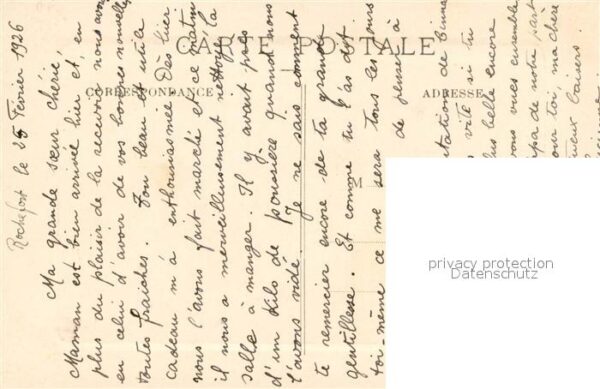 CARTE POSTALE
CORRESPONDANCE
ADRESSE
M
Rochefort le 25 Février 1926
Ma grande sœur chérie
Maman est bien arrivée hier et, en
plus du plaisir de la recevoir nous avons
en celui d'avoir de vos bonnes nouvelles
toutes fraîches. Ton beau et utile
cadeau m'a enthousiasmée. Dès hier
nous l'avons fait marché et ce matin
il nous a merveilleusement nettoyé la
salle à manger. Il y avait près
d'un kilo de poussière quand nous
l'avons vidé. Je ne sais comment
te remercier encore de ta grande
gentillesse. Et comme tu l'as dit
toi-même ce me sera tous les jours
de penser à
vite si tu
plus belle encore
vous vues ensemble
papa de notre part
pour toi, ma chère
baisers.
privacy protection
Datenschutz